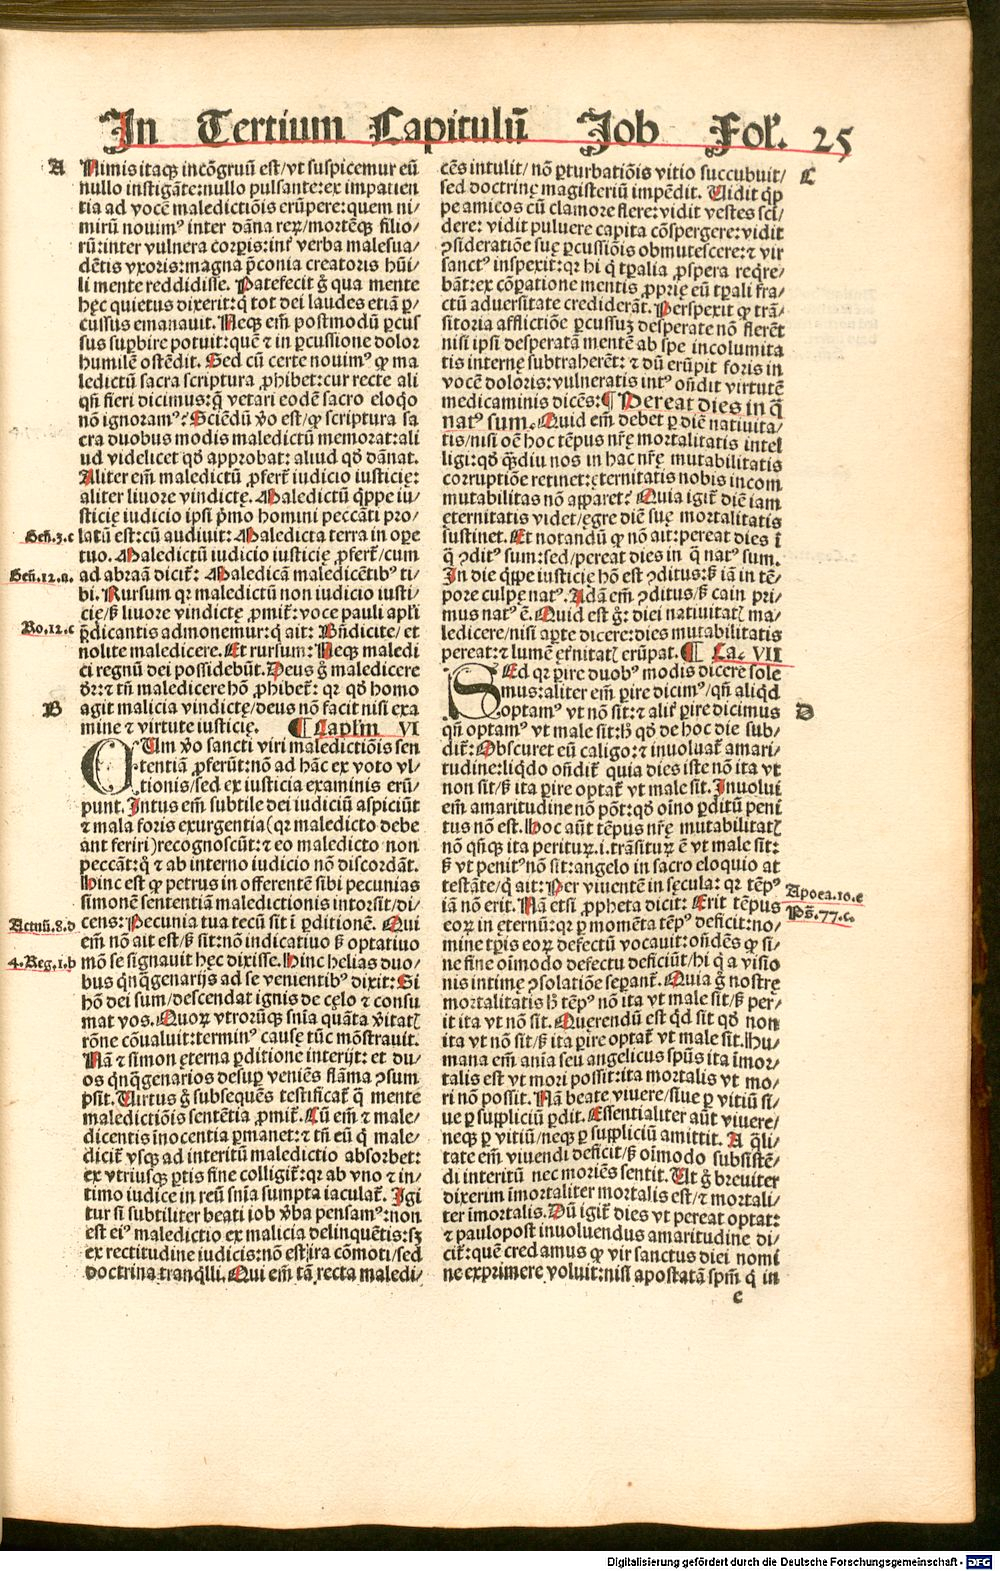 In Tertium Capitulū Job Fol. 25
A
Nimis itaq̄ incōgruū est/vt suspicemur eū
nullo instigāte:nullo pulsante:ex impatien
tia ad vocē maledictiōis erūpere:quem ni/
mirū nouimꝰ inter dāna rerꝝ/mortēq̄ filio/
rū:inter vulnera corꝑis:int̄ verba malesua/
dētis vxoris:magna p̄conia creatoris hūi/
li mente reddidisse. Patefecit g̊ qua mente
hęc quietus dixerit:q̇ tot dei laudes etiā ꝑ/
cussus emanauit. Neqꝫ em̄ postmodū ꝑcus
sus suꝑbire potuit:quē ⁊ in ꝑcussione dolor
humilē ostēdit. Sed cū certe nouimꝰ ꝙ ma
ledictū sacra scriptura ꝓhibet:cur recte ali
qn̄ fieri dicimus:q̇ vetari eodē sacro eloq̇o
nō ignoramꝰ? Sciēdū v̊o est/ꝙ scriptura sa
cra duobus modis maledictū memorat:ali
ud videlicet qd̄ approbat: aliud qd̄ dānat.
Aliter em̄ maledictū ꝓfert̄ iudicio iusticię:
aliter liuore vindictę. Maledictū q̇ppe iu/
sticię iudicio ipsi p̄mo homini peccāti pro/
Gen̄.3.c
latū est:cū audiuit: Maledicta terra in oꝑe
tuo. Maledictū iudicio iusticię ꝓfert̄/cum
Gen̄.12.a.
ad abraā dicit̄: Maledicā maledicētibꝰ ti/
bi. Rursum qꝛ maledictū non iudicio iusti/
cię/s̄ liuore vindictę ꝓmit̄: voce pauli apl̄i
Ro.12.c
p̄dicantis admonemur:q̇ ait: Bn̄dicite/ et
nolite maledicere. Et rursum: Neqꝫ maledi
ci regnū dei possidebūt. Deus g̊ maledicere
dr̄: ⁊ tn̄ maledicere hō ꝓhibet̄: qꝛ qd̄ homo
B
agit malicia vindictę/deus nō facit nisi exa
mine ⁊ virtute iusticię. ¶ Capl̄m VI
CUm v̊o sancti viri maledictiōis sen
tentiā ꝓferūt:nō ad hāc ex voto vl/
tionis/sed ex iusticia examinis erū/
punt. Intus em̄ subtile dei iudiciū aspiciūt
⁊ mala foris exurgentia(qꝛ maledicto debe
ant feriri)recognoscūt:⁊ eo maledicto non
peccāt:q̇ ⁊ ab interno iudicio nō discordāt.
Hinc est ꝙ petrus in offerentē sibi pecunias
simonē sententiā maledictionis intorsit/di/
Actuū.8.d
cens: Pecunia tua tecū sit ī ꝑditionē. Qui
em̄ nō ait est/s̄ sit:nō indicatiuo s̄ optatiuo
4.Reg.1.b
mō se signauit hęc dixisse. Hinc helias duo/
bus q̇nq̇genarijs ad se venientibꝰ dixit: Si
hō dei sum/descendat ignis de cęlo ⁊ consu
mat vos. Quoꝝ vtrorūqꝫ sn̄ia quāta v̄itatꝭ
rōne cōualuit:terminꝰ causę tūc mōstrauit.
Nā ⁊ simon ęterna ꝑditione interijt: et du/
os q̇nq̇genarios desuꝑ veniēs flāma ꝯsum
psit. Uirtus g̊ subsequēs testificat̄ q̇ mente
maledictiōis sentētia ꝓmit̄. Cū em̄ ⁊ male/
dicentis īnocentia ꝑmanet:⁊ tn̄ eū q̇ male/
dicit̄ vsqꝫ ad interitū maledictio absorbet:
ex vtriusqꝫ ꝑtis fine colligit̄:qꝛ ab vno ⁊ in/
timo iudice in reū sn̄ia sumpta iaculat̄. Igi
tur si subtiliter beati iob v̊ba pensamꝰ:non
est eiꝰ maledictio ex malicia delinquētis:sꝫ
ex rectitudine iudicis:nō est ira cōmoti/sed
doctrina tranq̇lli. Qui em̄ tā recta maledi/
cēs intulit/ nō ꝑturbatiōis vitio succubuit/
C
sed doctrinę magisteriū impēdit. Uidit q̇p/
pe amicos cū clamore flere: vidit vestes sci/
dere: vidit puluere capita cōspergere: vidit
ꝯsideratiōe suę ꝑcussiōis obmutescere:⁊ vir
sanctꝰ inspexit:qꝛ hi q̇ tꝑalia ꝓspera reqͥre/
bāt:ex cōꝑatione mentis ꝓprię eū tꝑali fra/
ctū aduersitate crediderāt. Perspexit ꝙ trā/
sitoria afflictiōe ꝑcussuꝫ desperate nō flerēt
nisi ipsi desperatā mentē ab spe incolumita
tis internę subtraherēt: ⁊ dū erūpit foris in
vocē doloris:vulneratis intꝰ on̄dit virtutē
medicaminis dicēs:¶ Pereat dies in q̄
natꝰ sum. Quid em̄ debet ꝑ diē natiuita/
tis/nisi oē hoc tēpus nr̄ę mortalitatis intel
ligi:qd̄ q̄diu nos in hac nr̄ę mutabilitatis
corruptiōe retinet:ęternitatis nobis incom
mutabilitas nō apparet? Quia igit̄ diē iam
ęternitatis videt/ęgre diē suę mortalitatis
sustinet. Et notandū ꝙ nō ait:pereat dies ī
q̄ ꝯditꝰ sum:sed/pereat dies in q̄ natꝰ sum.
In die q̇ppe iusticię hō est ꝯditus:s̄ iā in tē/
pore culpę natꝰ. Adā em̄ ꝯditus/s̄ cain pri/
mus natꝰ ē. Quid est g̊: diei natiuitatꝭ ma/
ledicere/nisi aꝑte dicere:dies mutabilitatis
pereat:⁊ lumē ęt̄nitatꝭ erūpat. ¶ Ca. VII
SEd qꝛ ꝑire duobꝰ modis dicere sole
mus:aliter em̄ ꝑire dicimꝰ/qn̄ aliq̇d
D
optamꝰ vt nō sit:⁊ alit̄ ꝑire dicimus
qn̄ optamꝰ vt male sit:h̄ qd̄ de hoc die sub/
dit̄: Obscuret eū caligo:⁊ inuoluat̄ amari/
tudine:liq̇do on̄dit̄ quia dies iste nō ita vt
non sit/s̄ ita ꝑire optat̄ vt male sit. Inuolui
em̄ amaritudine nō pōt:qd̄ oīno ꝑditū penī
tus nō est. Hoc aūt tēpus nr̄ę mutabilitatꝭ
nō qn̄qꝫ ita perituꝝ.i.trāsituꝝ ē vt male sit:
s̄ vt penitꝰ nō sit:angelo in sacro eloquio at
testāte/q̇ ait: Per viuentē in sęcula: qꝛ tēpꝰ
Apoca.10.e
iā nō erit. Nā etsi ꝓpheta dicit: Erit tēpus
Ps̄.77.c.
eoꝝ in ęternū:qꝛ ꝑ momēta tēpꝰ deficit:no/
mine tꝑis eoꝝ defectū vocauit:on̄dēs ꝙ si/
ne fine oīmodo defectu deficiūt/hi q̇ a visio
nis intimę ꝯsolatiōe seꝑant̄. Quia g̊ nostrę
mortalitatis h̄ tēpꝰ nō ita vt male sit/s̄ per/
it ita vt nō sit. Querendū est q̇d sit qd̄ non
ita vt nō sit/s̄ ita ꝑire optat̄ vt male sit. Hu/
mana em̄ an̄ia seu angelicus spūs ita īmor/
talis est vt mori possit:ita mortalis vt mo/
ri nō possit. Nā beate viuere/siue ꝑ vitiū si/
ue ꝑ suppliciū ꝑdit. Essentialiter aūt viuere/
neqꝫ ꝑ vitiū/neqꝫ ꝑ suppliciū amittit. A q̄li/
tate em̄ viuendi deficit/s̄ oīmodo subsistē/
di interitū nec moriēs sentit. Ut g̊ breuiter
dixerim īmortaliter mortalis est/⁊ mortali/
ter īmortalis. Dū igit̄ dies vt pereat optat:
⁊ paulopost inuoluendus amaritudine di/
cit̄:quē credamus ꝙ vir sanctus diei nomi
ne exprimere voluit:nisi apostatā spm̄ q̇ in
c
Digitalisierung gefördert durch die Deutsche Forschungsgemeinschaft - DFG